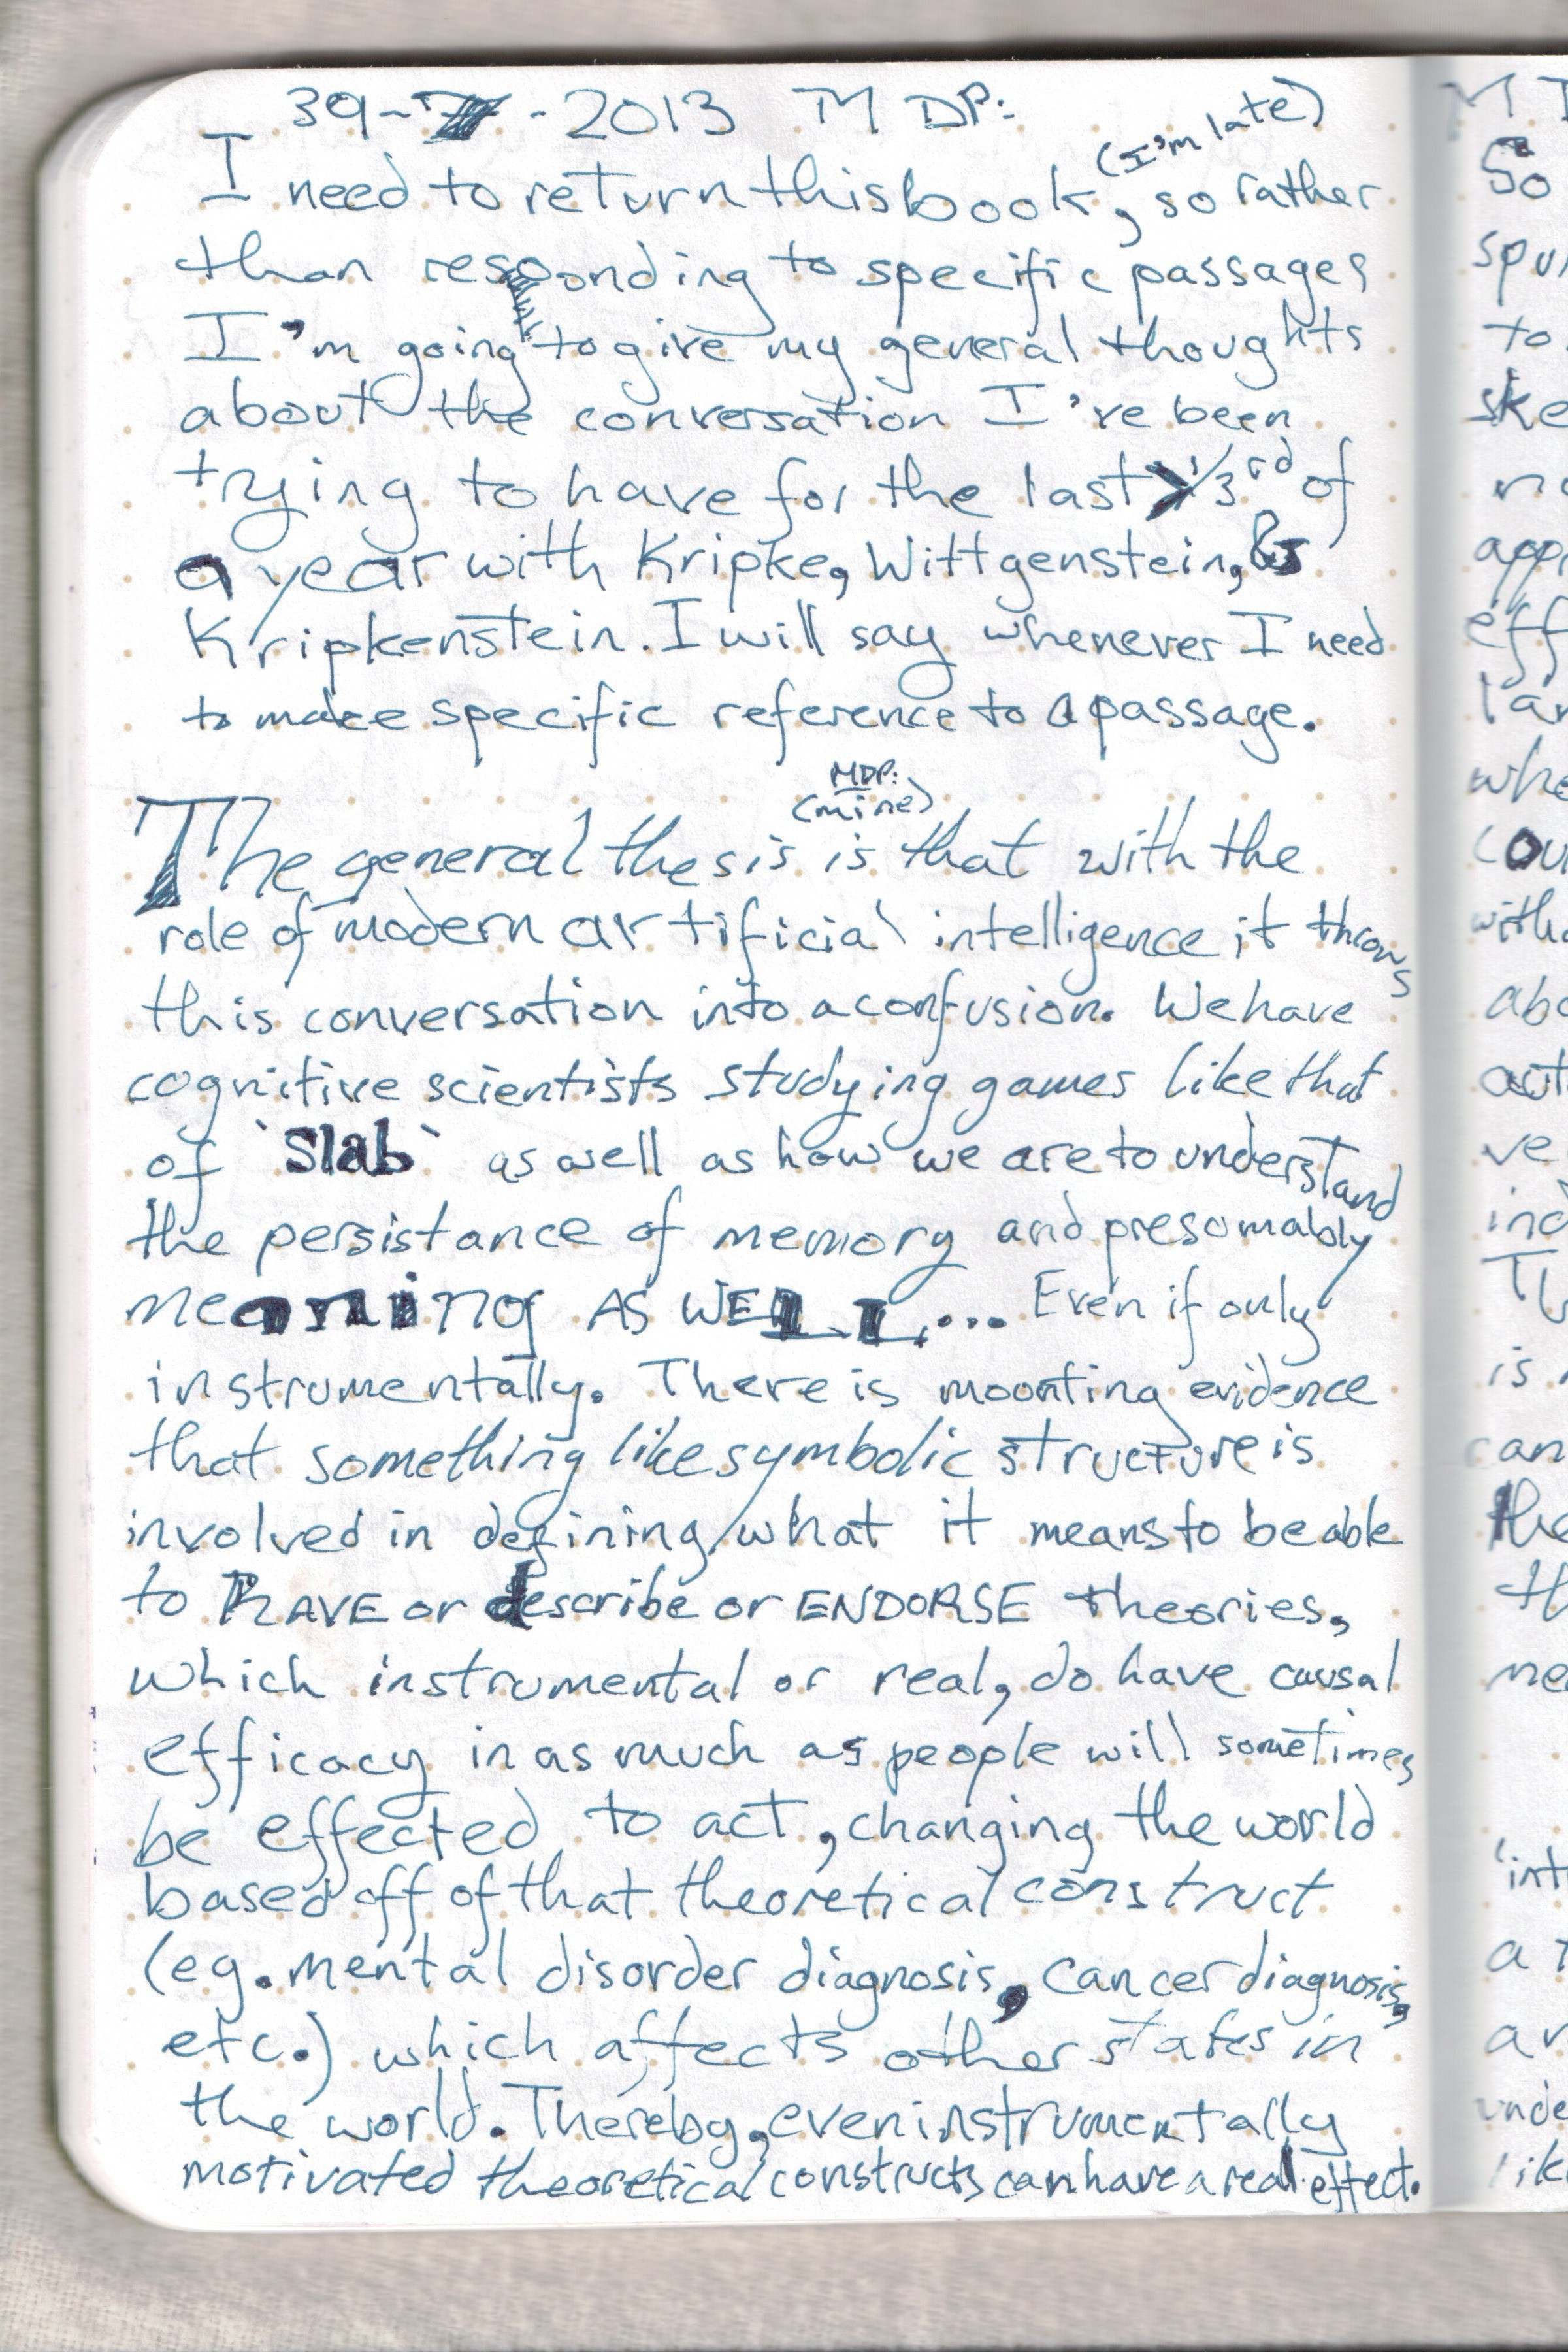 39-7-2013 MDP:
(I'm late)
I need to return this book, so rather
than responding to specific passages
I'm going to give my general thoughts
about the conversation I've been
trying to have for the last 1/3rd of
a year with Kripke, Wittgenstein, &
Kripkenstein. I will say whenever I need
to make specific reference to a passage.
MDP:
(mine)
The general thesis is that with the
role of modern artificial intelligence it throws
this conversation into a confusion. We have
cognitive scientists studying games like that
of `Slab` as well as how we are to understand
the persistance of memory and presumably
meaning AS WELL... Even if only
instrumentally. There is mounting evidence
that something like symbolic structure is
involved in defining what it means to be able
to HAVE or describe or ENDORSE theories,
which instrumental or real, do have causal
efficacy in as much as people will sometimes
be effected to act, changing the world
based off of that theoretical construct
(eg. mental disorder diagnosis, cancer diagnosis,
etc.) which affects other states in
the world. Thereby, even instrumentally
motivated theoretical constructs can have a real effect.
M
So
to
is
a